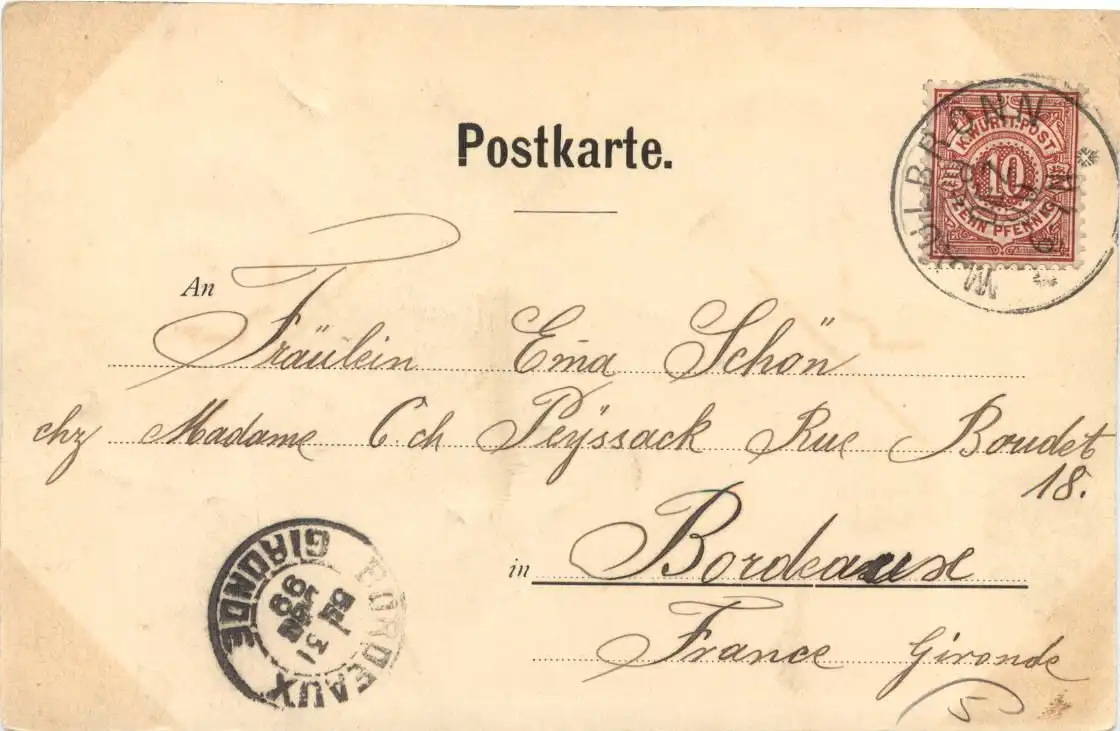 Postkarte.
K.WÜRTT.POST
10
ZEHN PFENNIG
An
Fräulein Em̄a Schön
chz Madame C. ch Peÿssack Rue Boudet
18.
in Bordeaux
France Gironde
5
BORDEAUX
31
99
GIRONDE